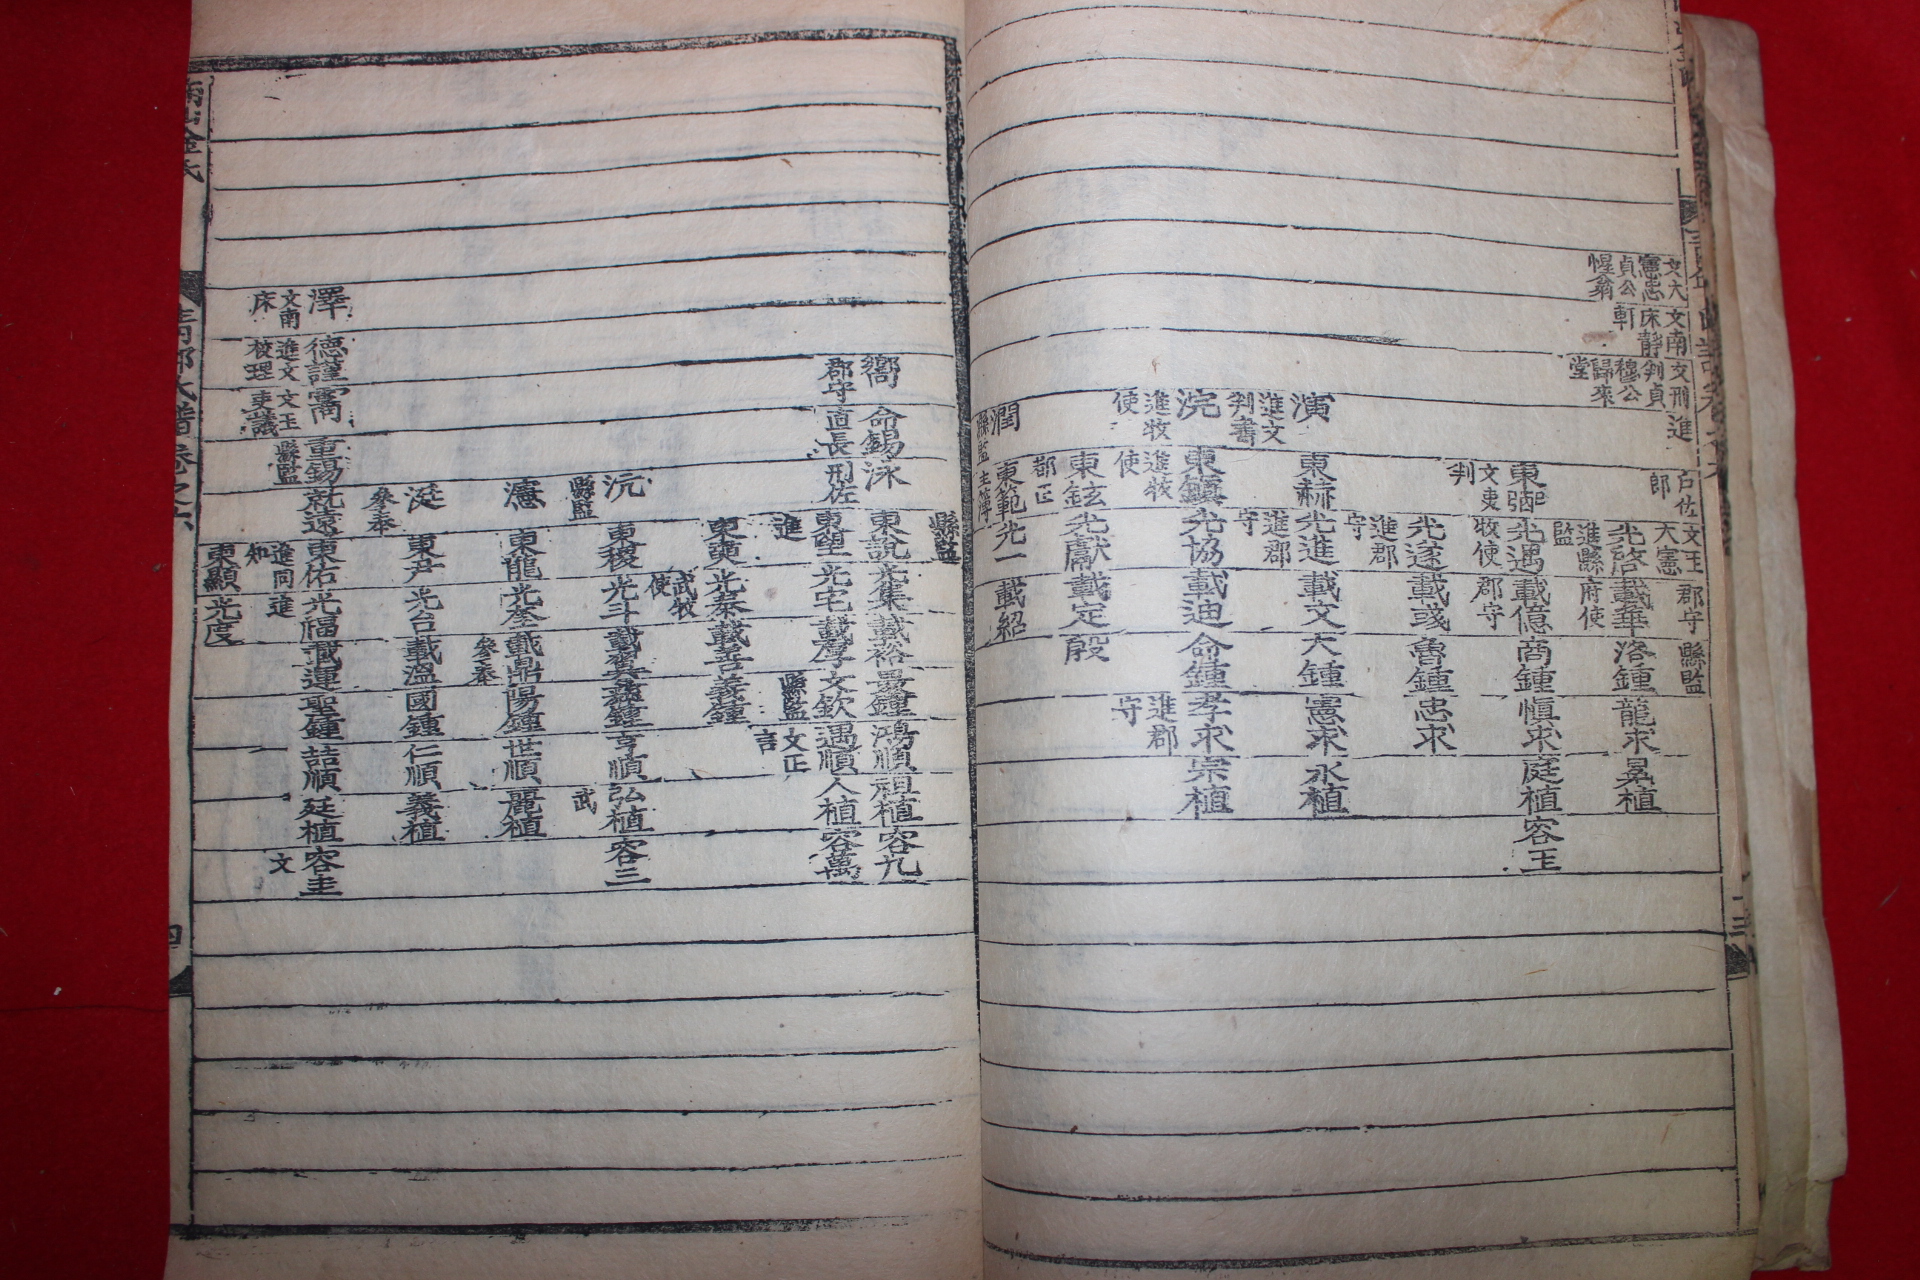 文大憲忠貞公惺翁
文南床靜軒
文刑判貞穆公歸來堂
進
戶佐郎
文王大憲
郡守
縣監
光啓
載華
洛鍾
龍求
晷植
進縣監
府使
東弼
光遇
載億
商鍾
愼求
庭植
容王
文吏判
牧使
郡守
光遂
載彧
魯鍾
忠求
進郡守
演
東赫
光進
載文
大鍾
憲求
永植
進文判書
進郡守
浣
東鎭
光協
載迪
命鍾
孝求
宗植
進牧使
進牧使
進郡守
東鉉
光獻
載定
殷
都正
潤
東範
光一
載紹
縣監
主簿
縣監
嚮
命錫
泳
東說
光集
載裕
晏鍾
鴻順
祖植
容九
郡守
直長
刑佐
東望
光宅
載厚
文欽
遇順
人植
容萬
進
縣監
文正言
東奭
光泰
載善
義鍾
武牧使
沅
東稷
光斗
載翼
彝鍾
亨順
弘植
容三
縣監
武
濾
東龍
光奎
載鼎
陽鍾
世順
麗植
參奉
涎
東尹
光台
載溫
國鍾
仁順
義植
參奉
澤
德謹
霌
重錫
就遠
東佑
光福
載運
聖鍾
喆順
廷植
容圭
文南床
進文校理
文王吏議
縣監
進同知
進
文
東顯
光度
金氏
靑邱氏譜卷之六
四